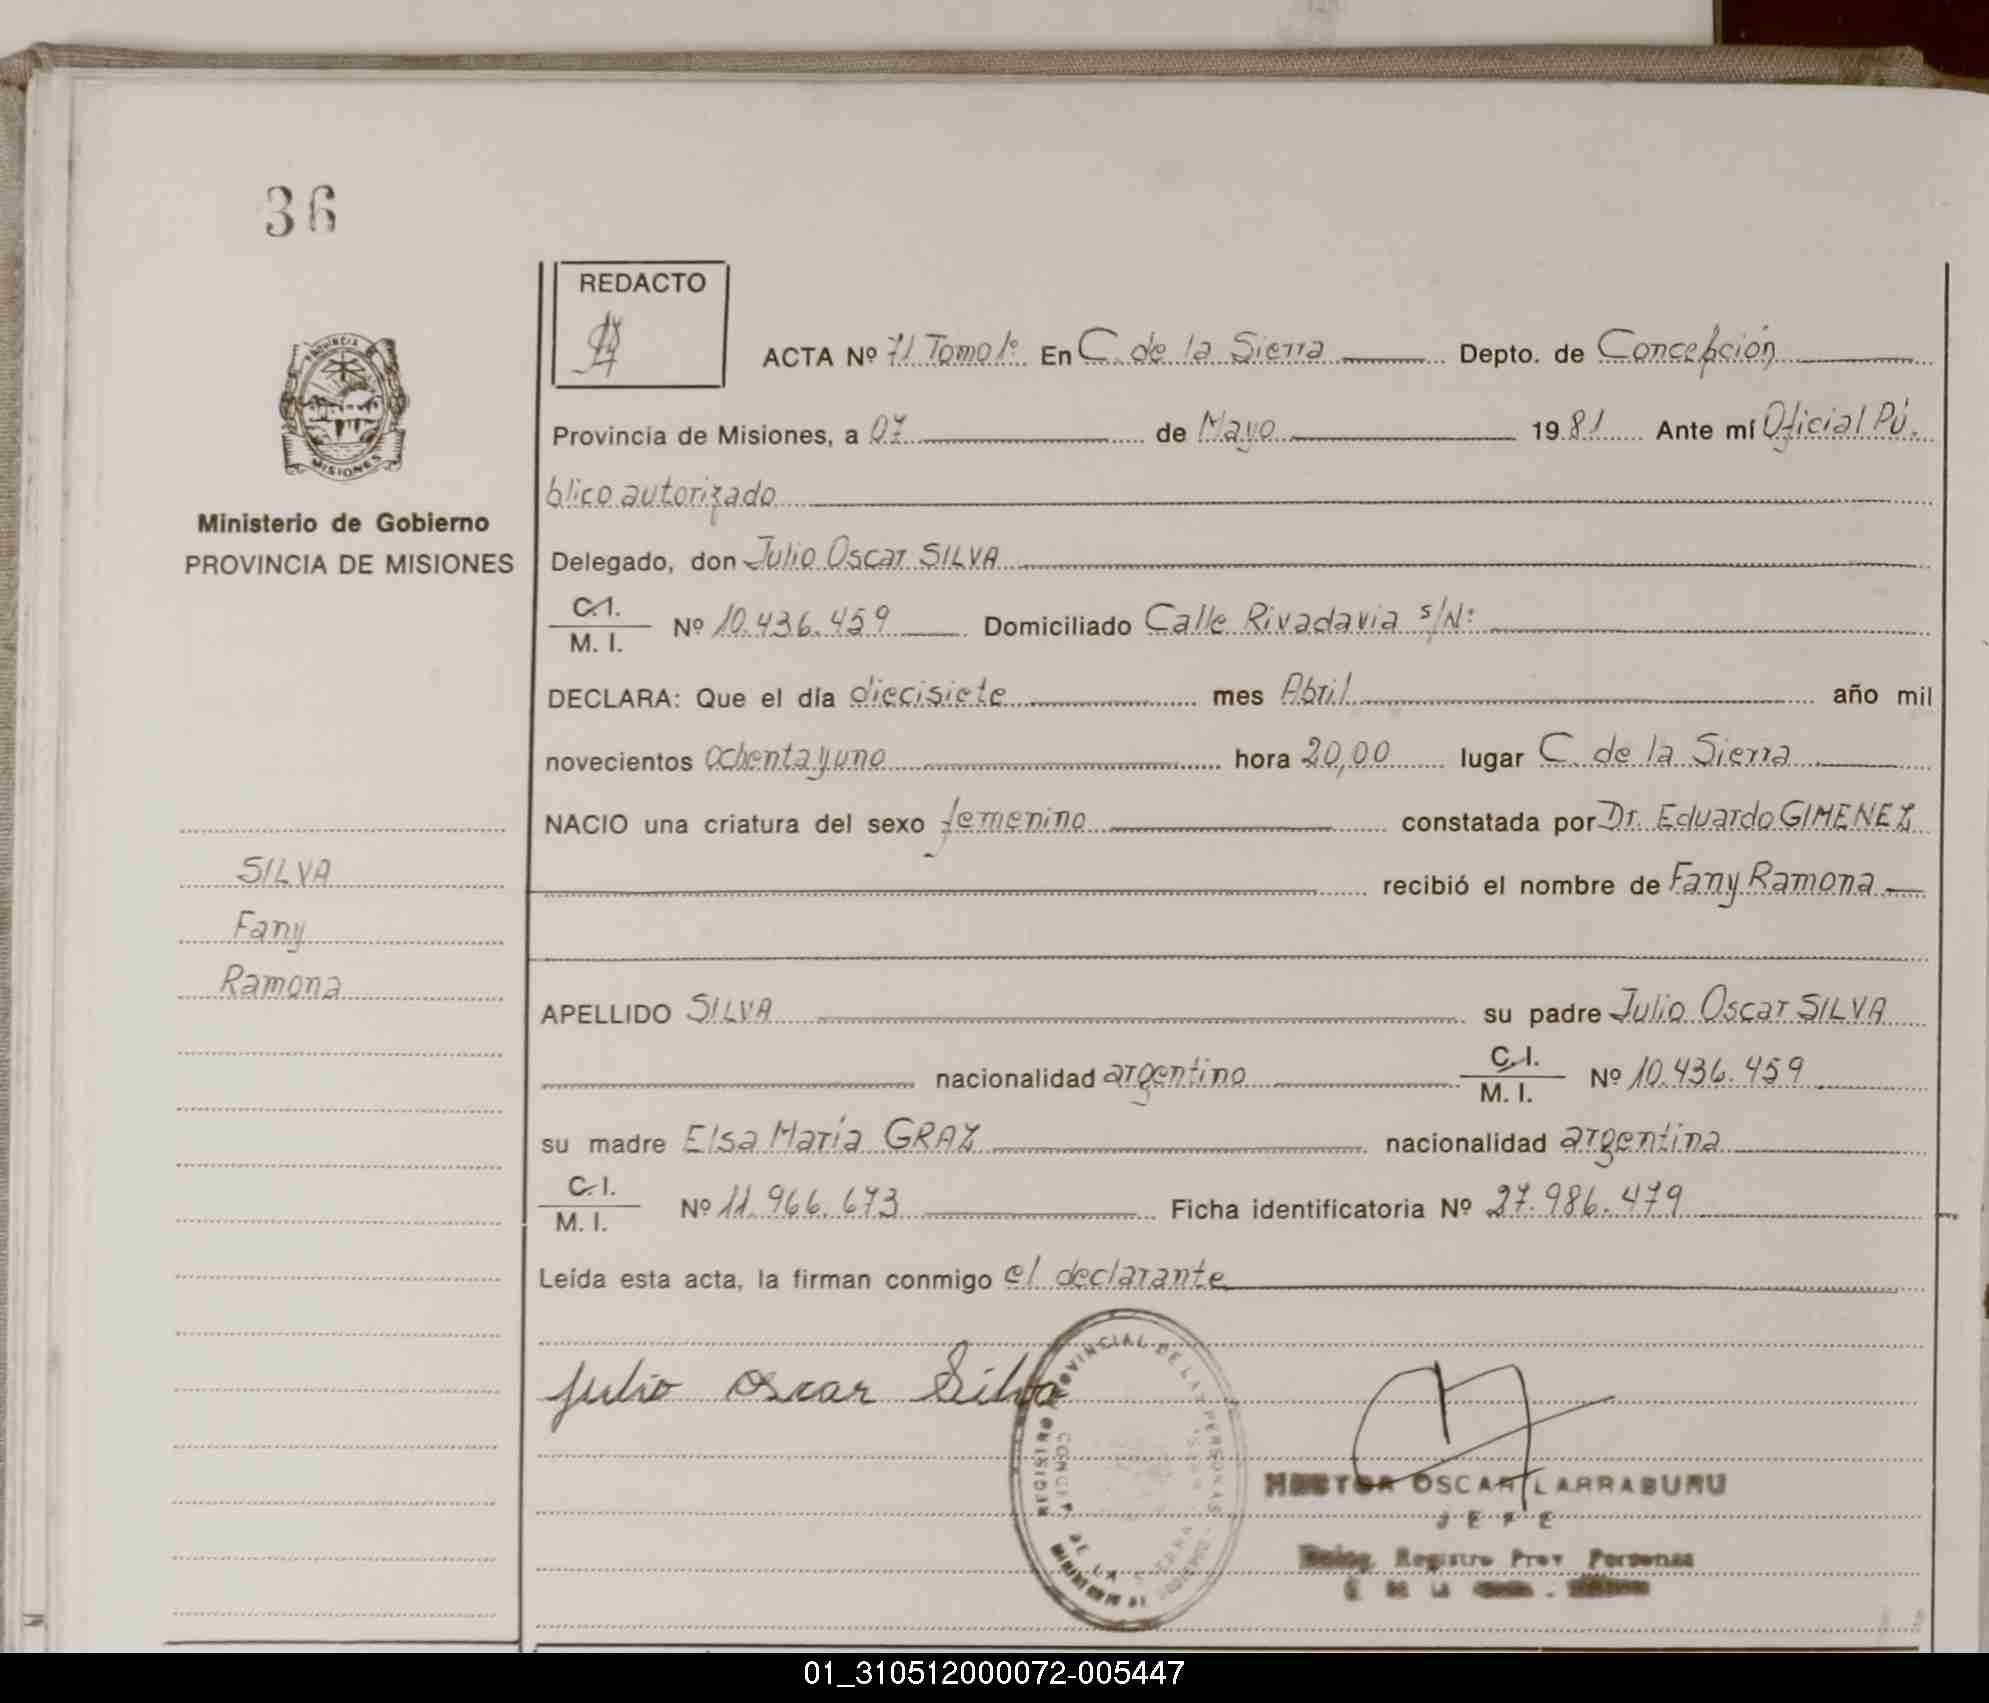 36
REDACTO
ACTA Nº 71 Tomo 1º En C. de la Sierra Depto. de Concepción
Provincia de Misiones, a 07 de Mayo 1981 Ante mí Oficial Pú-
blico autorizado
PROVINCIA DE
MISIONES
Ministerio de Gobierno
PROVINCIA DE MISIONES
Delegado, don Julio Oscar SILVA
C.I.
M. I. Nº 10.436.459 Domiciliado Calle Rivadavia s/Nº
DECLARA: Que el día diecisiete mes Abril año mil
novecientos ochenta y uno hora 20,00 lugar C. de la Sierra
NACIO una criatura del sexo femenino constatada por Dr. Eduardo GIMENEZ
SILVA
recibió el nombre de Fany Ramona
Fany
Ramona
APELLIDO SILVA su padre Julio Oscar SILVA
nacionalidad argentino C.I.
M. I. Nº 10.436.459
su madre Elsa María GRAZ nacionalidad argentina
C.I.
M. I. Nº 11.966.673 Ficha identificatoria Nº 27.986.479
Leída esta acta, la firman conmigo el declarante
Julio Oscar Silva
REGISTRO PROVINCIAL DE LAS PERSONAS
HECTOR OSCAR LARRABURU
JEFE
Deleg. Registro Prov Personas
C DE LA
01_310512000072-005447